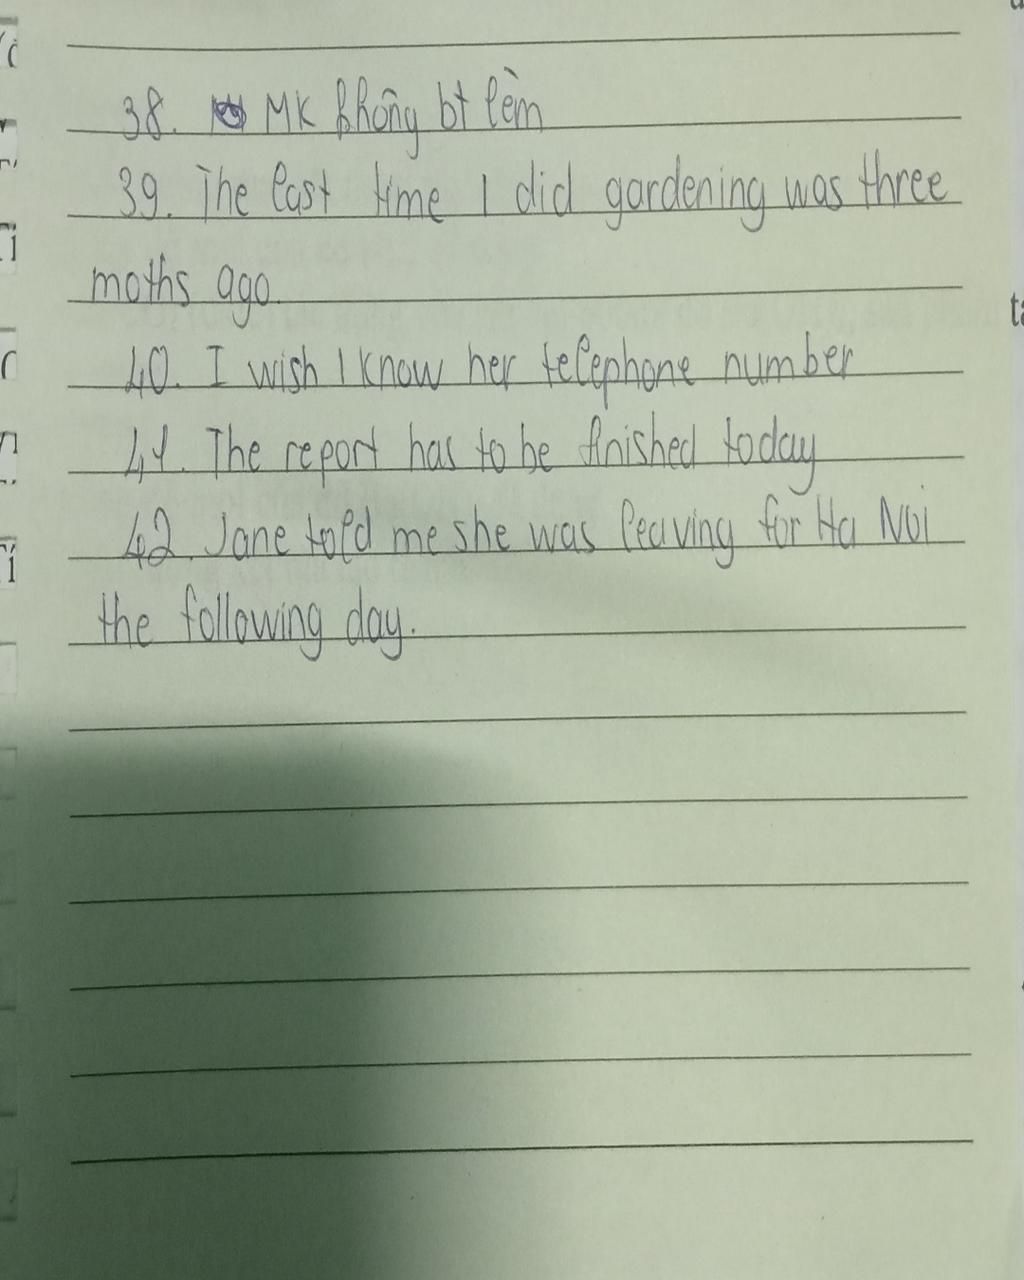 38. MK không bt lèm
39. The last time I did gardening was three
moths ago.
40. I wish I know her telephone number
41. The report has to be finished today
42. Jane told me she was leaving for Ha Noi
the following day.